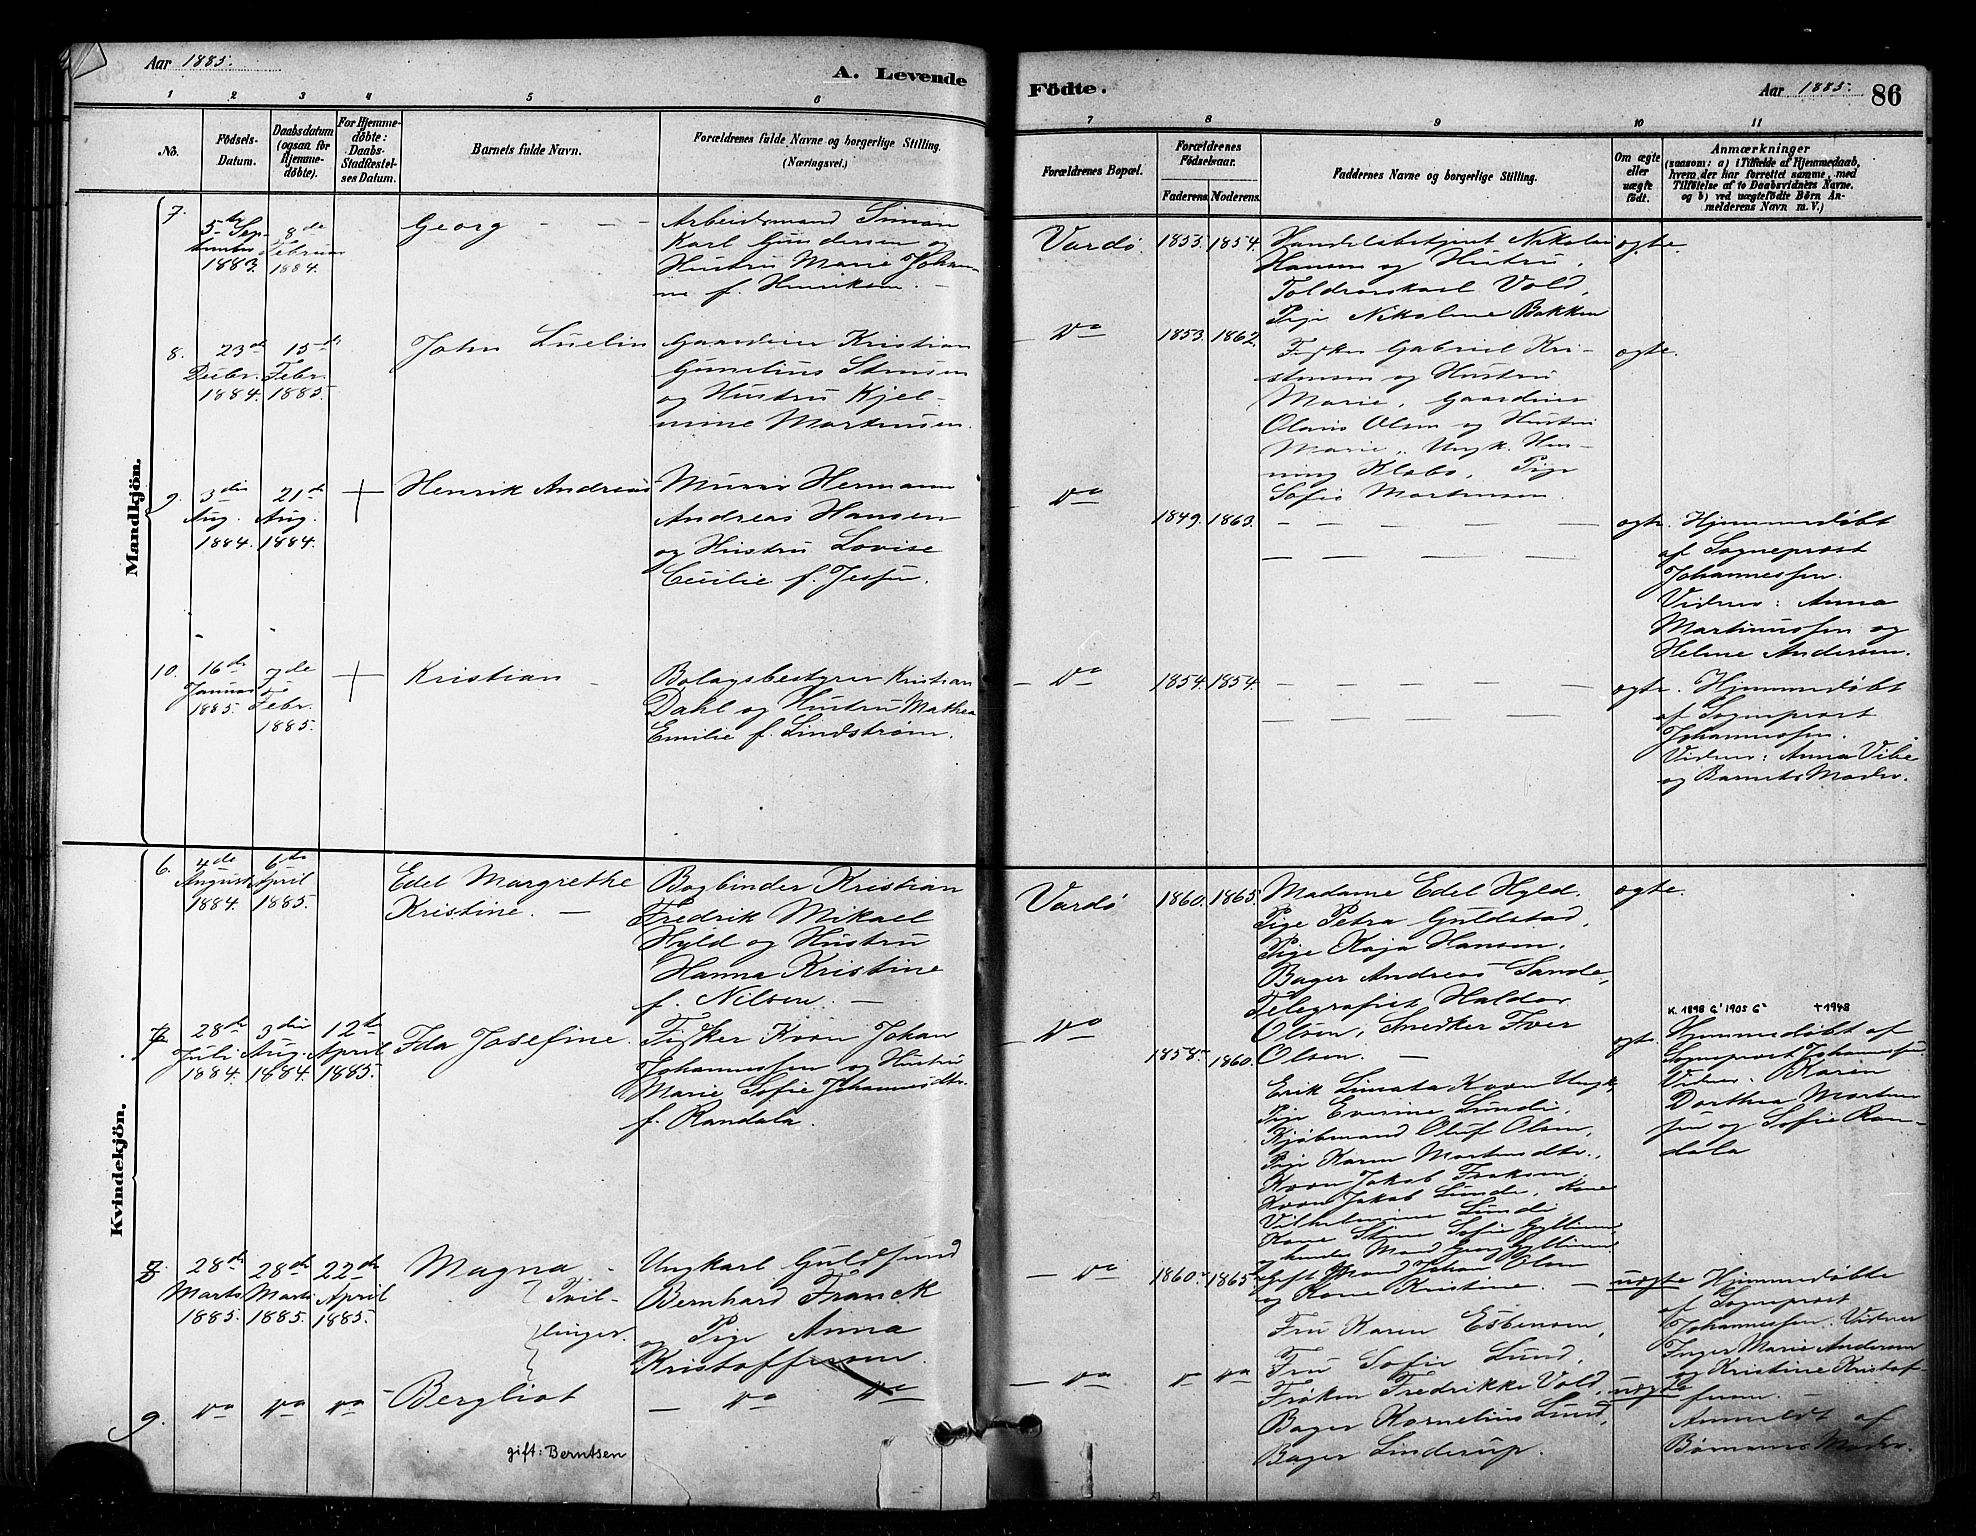 Aar 1885.
A. Levende
Fødte.
Aar 1885.
86
1 2 3 4 5 6
7 8 9 10 11
No.
Fødsels-Datum.
Daabsdatum (ogsaa for Hjemmedøbte).
For Hjemmedøbte: Daabs-Stadfestelses Datum.
Barnets fulde Navn.
Forældrenes fulde Navne og borgerlige Stilling. (Næringsvei.)
Forældrenes Bopæl.
Forældrenes Fødselsaar.
Faderens. Moderens.
Faddernes Navne og borgerlige Stilling.
Om ægte eller uægte født.
Anmærkninger
(saasom: a) i Tilfælde af Hjemmedaab,
hvem der har forrettet samme, med
Tilføielse af to Daabsvidners Navne.
og b) ved uægtefødte Børn Anmelderens Navn m. V.)
Mandkjön.
7.
5te September 1883.
8de Februar 1884.
Georg
Arbeidsmand Simon
Karl Gundersen og
Hustru Marie Johanne
f. Henriksen.
Vardø
1853. 1854.
Handelsbetjent Nikolai
Hansen og Hustru,
Toldrorskarl Vold,
Pige Nikoline Bakken
ægte.
8.
23de Decbr. 1884.
15de Febr. 1885.
John Luelin
Gaardeier Kristian
Gunelius Stensen
og Hustru Kjelmine Martinsen.
Do
1853. 1862.
Fisker Gabriel Kristensen og Hustru
Marie, Gaardeier
Olaus Olsen og Hustru
Marie, Ungk. Henning Klabo, Pige
Sofie Mortensen.
ægte.
9.
3die Aug. 1884.
21de Aug. 1884.
+
Henrik Andreas
Murer Hermann
Andreas Hansen
og Hustru Lovise
Cecilie f. Jessen.
Do
1849. 1863.
ægte.
Hjemmedøbt
af Sogneprest
Johannessen.
Vidner: Anna
Martinussen og
Helene Andersen.
10.
16de Januar 1885.
7de Febr. 1885.
+
Kristian
Bolagsbestyrer Kristian
Dahl og Hustru Mathea
Emilie f. Lindstrøm.
Do
1854. 1854.
ægte.
Hjemmedøbt
af Sogneprest
Johannessen.
Vidner: Anna Vibe
og Barnets Moder.
Kvindekjön.
6.
4de August 1884.
6te April 1885.
Edel Margrethe
Kristine.
Bogbinder Kristian
Fredrik Mikael
Hyld og Hustru
Hanna Kristine
f. Nilsen.
Vardø
1860. 1865.
Madame Edel Hyld.
Pige Petra Guldstad,
Pige Kaja Hansen,
Bager Andreas Sande,
Telegrafist Haldor
Olsen, Snedker Iver
Olsen.
ægte.
7.
28de Juli 1884.
3die Aug. 1884.
12te April 1885.
Ida Josefine.
Fisker Kvæn Johan
Johannessen og Hustru
Marie Sofie Johannesdtr.
f. Randala.
Do
1858. 1860.
Erik Limata Kvæn Ungk.
Pige Evirine Lundi,
Kjøbmand Oluf Olsen,
Pige Karen Mortensdtr.,
Kvæn Jakob
Kvæn Jakob Lunde, Kone
Vilhelmine Lundi,
Kone Stine Sofie
Gift Mand Johan Olsen
og Kone Kristine.
ægte.
K. 1898 G' 1905 G² † 1948
Hjemmedøbt af
Sogneprest Johannessen
Vidner. Karen
Dorthea Mortensen og Sofie Randala
8.
28de Marts 1885.
28de Marts 1885.
22de April 1885.
Magna
Tvillinger.
Ungkarl Guldsund
Bernhard Franck
og Pige Anna
Kristoffersen.
Do
1860. 1865.
Fru Karen Esbensen,
Fru Sofie Lund,
Frøken Fredrikke Vold,
Bager Kornelius Lund,
Bager Linderup.
uægte
Hjemmedøbte
af Sogneprest
Johannessen. Vidner
Inger Marie Andersen
og Kristine Kristoffersen.
Anmeldt af
Børnenes Moder.
9.
Do Do Do
Bergliot
Do Do
Do
D Do
uægte
gift: Berntsen